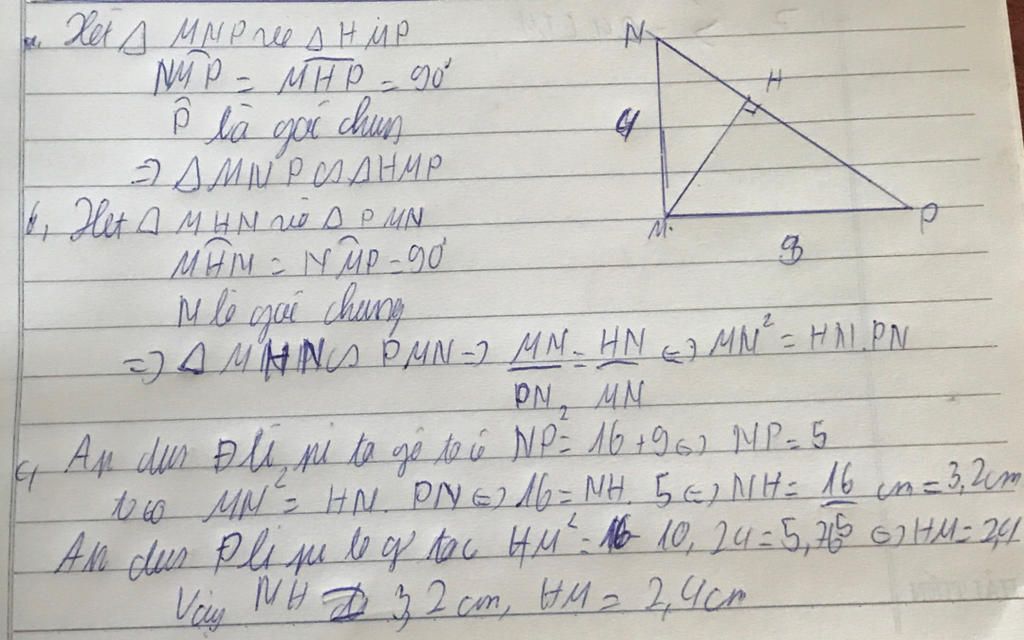 a, Xét Δ MNP và Δ HMP
NMP = MHP = 90°
P̂ là góc chung
=> Δ MNP ∽ Δ HMP
b, Xét Δ MHN và Δ PMN
MHN = NMP = 90°
N là góc chung
=> Δ MHN ∽ PMN => MN/PN = HN/MN <=> MN² = HN.PN
c, Áp dụng Đlí pi ta gô ta có NP² = 16 + 9 <=> NP = 5
ta có MN² = HN. PN <=> 16 = NH. 5 <=> NH = 16 cm = 3,2cm
Áp dụng Đlí pi ta gô ta có HM² = 16 - 10,24 = 5,76 <=> HM = 2,4
Vậy NH = 3,2 cm, HM = 2,4cm
N
H
4
M
P
3